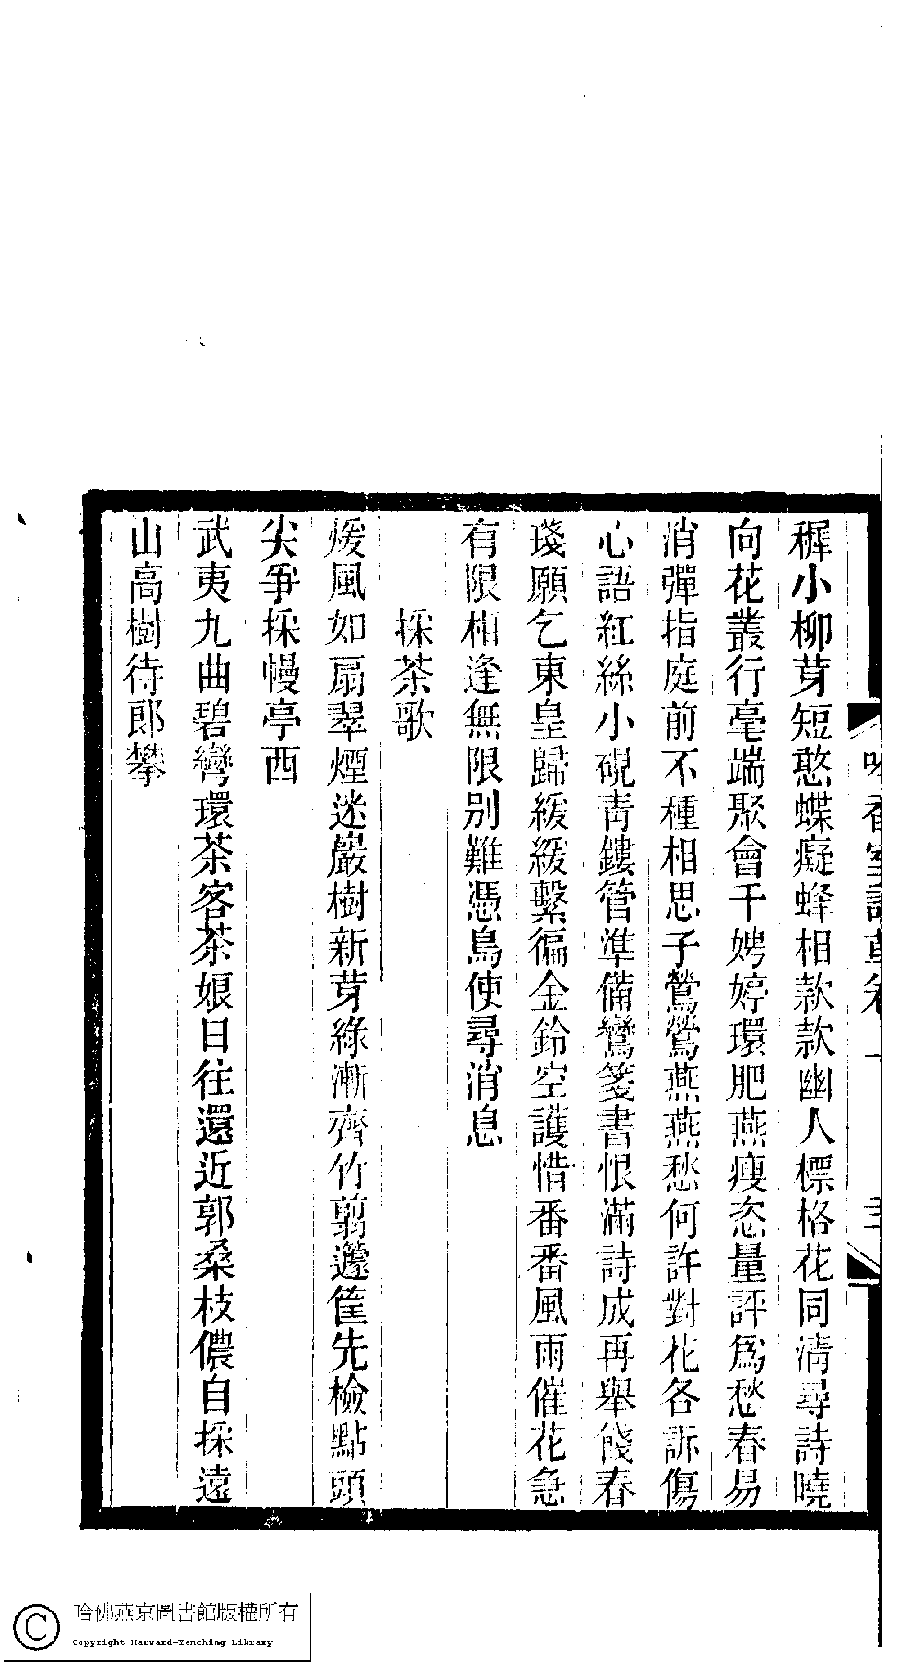 穉小柳芽短憨蝶癡蜂相款款幽人標格花同清尋詩曉
向花叢行毫端聚會千娉婷環肥燕瘦恣量評爲愁春易
消彈指庭前不種相思子鶯鶯燕燕愁何許對花各訴傷
心語紅絲小硯靑鏤管準備鸞箋書恨滿詩成再舉餞春
琖願乞東皇歸緩緩繫徧金鈴空護惜番番風雨催花急
有限相逢無限别難憑鳥使尋消息
採茶歌
煖風如扇翠煙迷巖樹新芽綠漸齊竹翦籩筐先檢點頭
尖爭採幔亭西
武夷九曲碧彎環茶客茶娘日往還近郭桑枝儂自採遠
山高樹待郎攀
香室詩草卷一
哈佛燕京圖書館版權所有
Copyright Harvard-Yenching Library